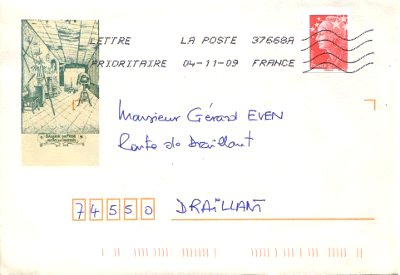 LETTRE LA POSTE 37668A
PRIORITAIRE 04-11-09 FRANCE
Monsieur Gérard EVEN
Route de Draillant
74550 DRAILLANT